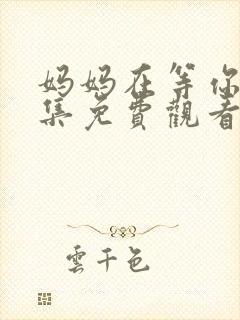 妈妈在等你
集免費觀看
雲千色